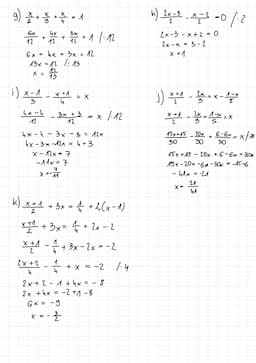 g) x/2 + x/3 + x/4 = 1
6x/12 + 4x/12 + 3x/12 = 1 /·12
6x + 4x + 3x = 12
13x = 12 /:13
x = 12/13
h) 2x-3/2 - x-2/2 = 0 /·2
2x-3 - x+2 = 0
2x-x = 3-2
x = 1
i) x-1/3 - x+1/4 = x
4x-4/12 - 3x+3/12 = x /·12
4x-4 - 3x-3 = 12x
4x-3x-12x = 4+3
x-12x = 7
-11x = 7
j) x+1/2 - 2x/3 = x - 1-x/5
15x+15/30 - 20x/30 + 6-6x/30 = x /·30
15x+15 - 20x + 6-6x = 30x
-41x = -21
x = 21/41
k) x+1/2 + 3x = 1/4 + 2(x-1)
x+1/2 + 3x = 1/4 + 2x-2
x+1/2 - 1/4 + 3x-2x = -2
2x+2/4 - 1/4 + x = -2 /·4
2x+2 - 1 + 4x = -8
2x + 4x = -2+1-8
6x = -9
x = -3/2